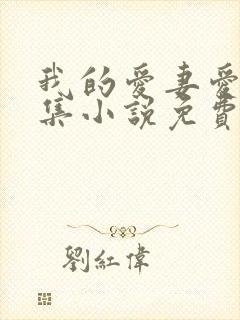 我的愛妻愛
集小說免費
劉紅偉